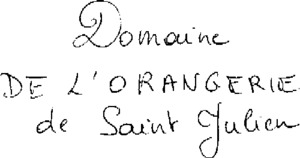 Domaine
DE L'ORANGERIE
de Saint Julien